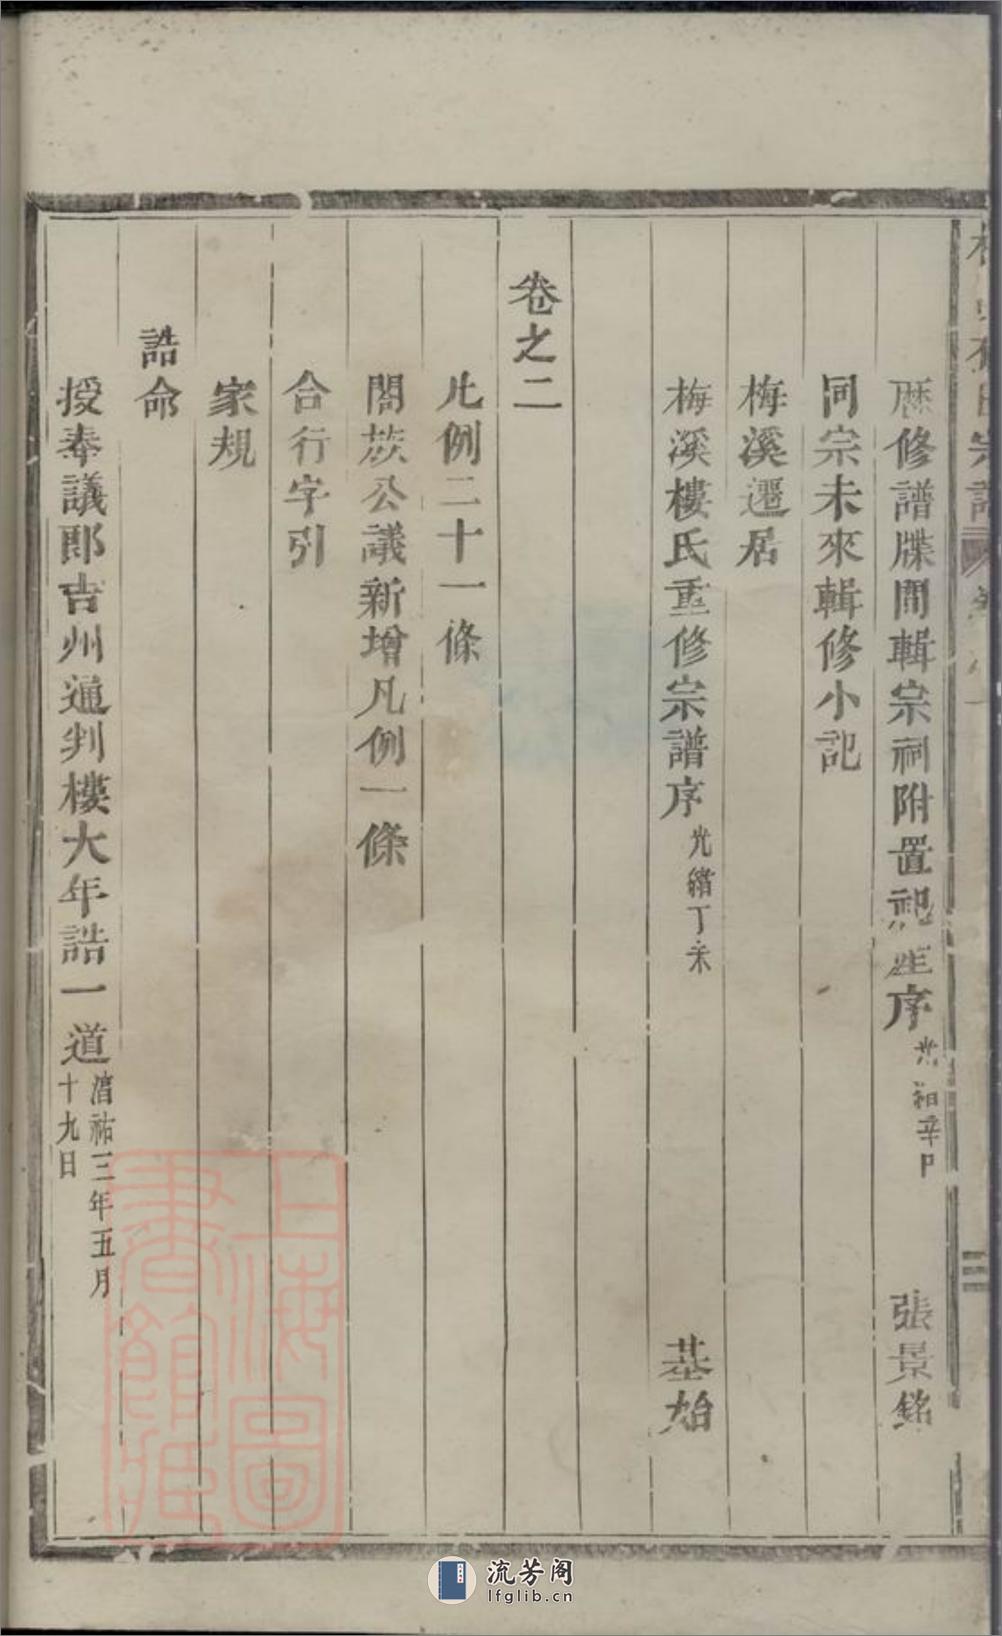 歷修譜牒間輯宗祠附置祀産序 辛巳 張景銘
同宗未來輯修小記
梅溪遷居
梅溪樓氏重修宗譜序 光緒丁未 基始
卷之二
凡例二十一條
閤族公議新增凡例一條
合行字引
家規
誥命
授奉議郎吉州通判樓大年誥一道 淳祐三年五月
十九日
上海圖
書館藏
流芳阁
lfglib.cn